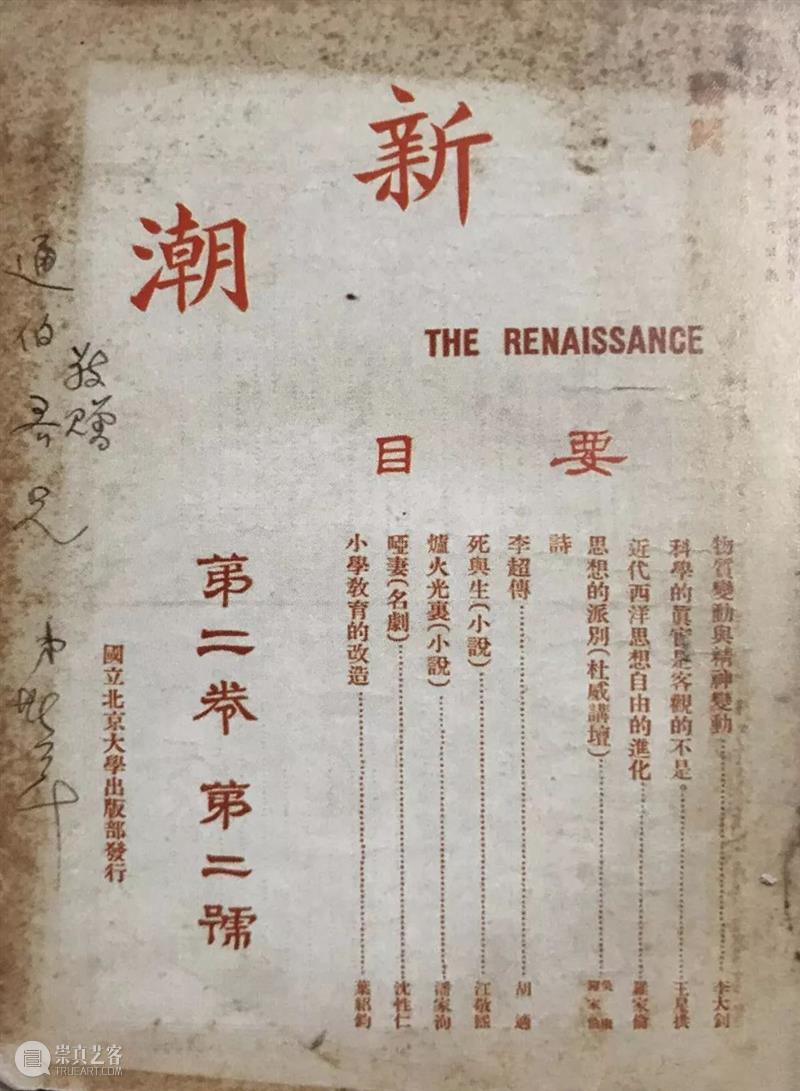 新潮
THE RENAISSANCE
要目
物質變動與精神變動 李大釗
科學的眞實是客觀的不是 王星拱
近代西洋思想自由的進化 羅家倫
思想的派別(杜威講壇) 吳康 羅家倫
詩
李超傳 胡適
死與生(小說) 汪敬熙
爐火光裏(小說) 潘家洵
啞妻(名劇) 沈性仁
小學敎育的改造 葉紹鈞
第二卷 第二號
國立北京大學出版部發行
通伯吾兄
敬贈
弟
崇真艺客
TRUEART.COM